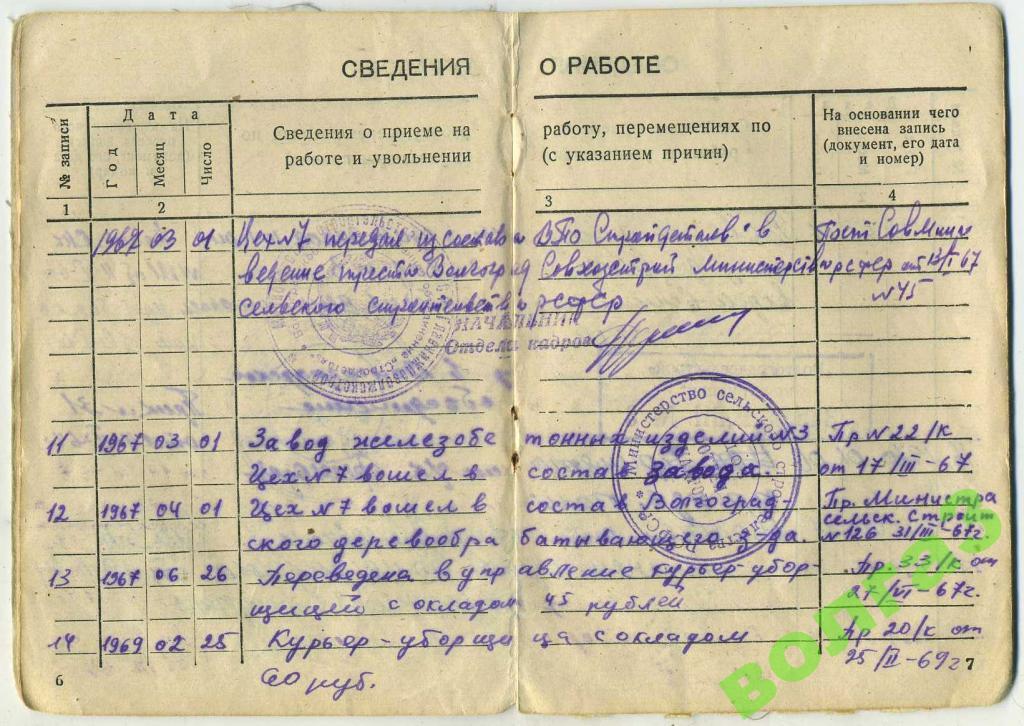 СВЕДЕНИЯ О РАБОТЕ
№ записи
Дата
Год
Месяц
Число
Сведения о приеме на работу, перемещениях по
работе и увольнении (с указанием причин)
На основании чего
внесена запись
(документ, его дата
и номер)
1 2 3 4
1967 03 01 Цех №7 передан из состава ВПО Стройдеталь в Пост Сов Мин
ведение треста Волгоград Совхозстрой Министерства РСФСР от 13/I 67
сельского строительства РСФСР №45
НАЧАЛЬНИК
Отдела кадров
Министерство сельского строительства РСФСР
11 1967 03 01 Завод железобе тонных изделий №3 Пр №22/к
Цех №7 вошел в состав Завода. от 17/III-67
12 1967 04 01 Цех №7 вошел в состав Волгоград Пр. Министра
сельск. Строит
ского деревообра батывающего з-да. №126 31/III-67г.
13 1967 06 26 Переведена в упр авление курьер-убор Пр. 33/к от
щицей с окладом 45 рублей 27/VI-67г.
14 1969 02 25 Курьер-уборщи ца с окладом Пр 20/к от
60 руб. 25/II-69г
6 7
волгаэ